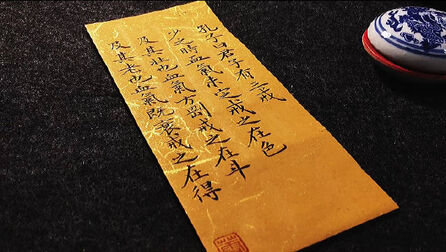 孔子曰君子有三戒
少之時血氣未定戒之在色
及其壯也血氣方剛戒之在斗
及其老也血氣既衰戒之在得